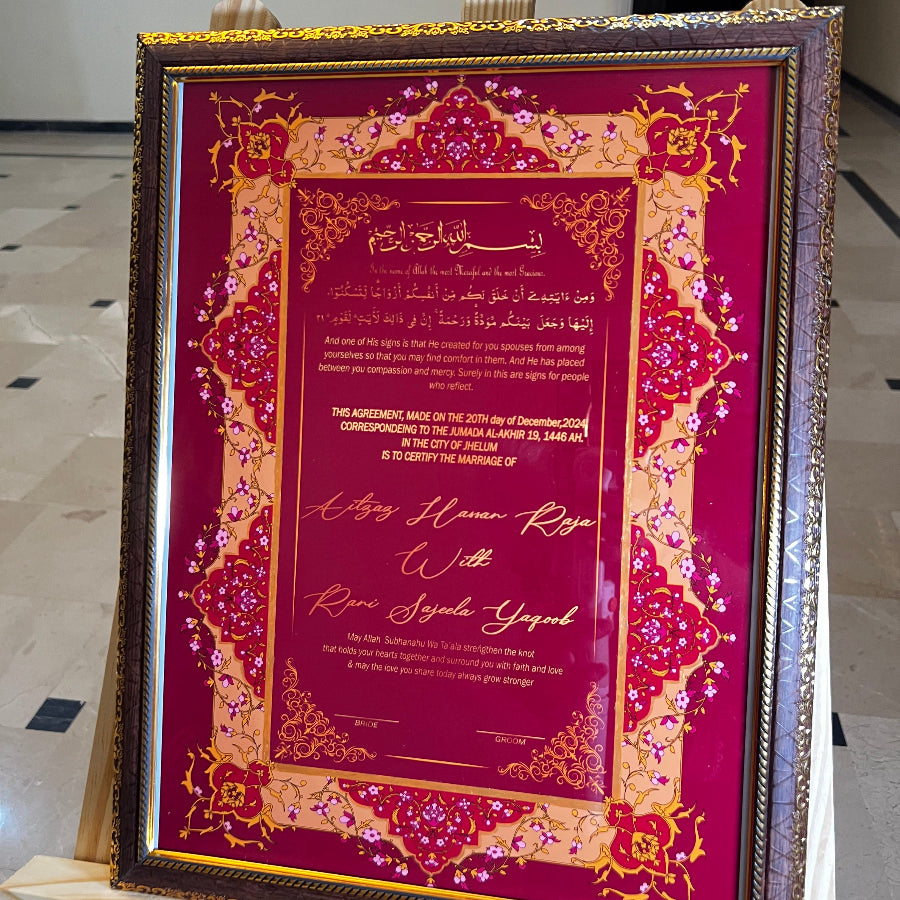 بِسْمِ اللَّهِ الرَّحْمَنِ الرَّحِيمِ
In the name of Allah the most Merciful and the most Gracious.
وَمِنْ ءَايَـٰتِهِۦٓ أَنْ خَلَقَ لَكُم مِّنْ أَنفُسِكُمْ أَزْوَٰجًا لِّتَسْكُنُوٓا۟
إِلَيْهَا وَجَعَلَ بَيْنَكُم مَّوَدَّةً وَرَحْمَةً ۚ إِنَّ فِى ذَٰلِكَ لَـَٔايَـٰتٍ لِّقَوْمٍ ٢١
And one of His signs is that He created for you spouses from among
yourselves so that you may find comfort in them. And He has placed
between you compassion and mercy. Surely in this are signs for people
who reflect.
THIS AGREEMENT, MADE ON THE 20TH day of December,2024
CORRESPONDEING TO THE JUMADA AL-AKHIR 19, 1446 AH.
IN THE CITY OF JHELUM
IS TO CERTIFY THE MARRIAGE OF
Aitzaz Hassan Raja
With
Rani Sajeela Yaqoob
May Allah Subhanahu Wa Ta'ala strengthen the knot
that holds your hearts together and surround you with faith and love
& may ths love you share today always grow stronger
BRIDE
GROOM